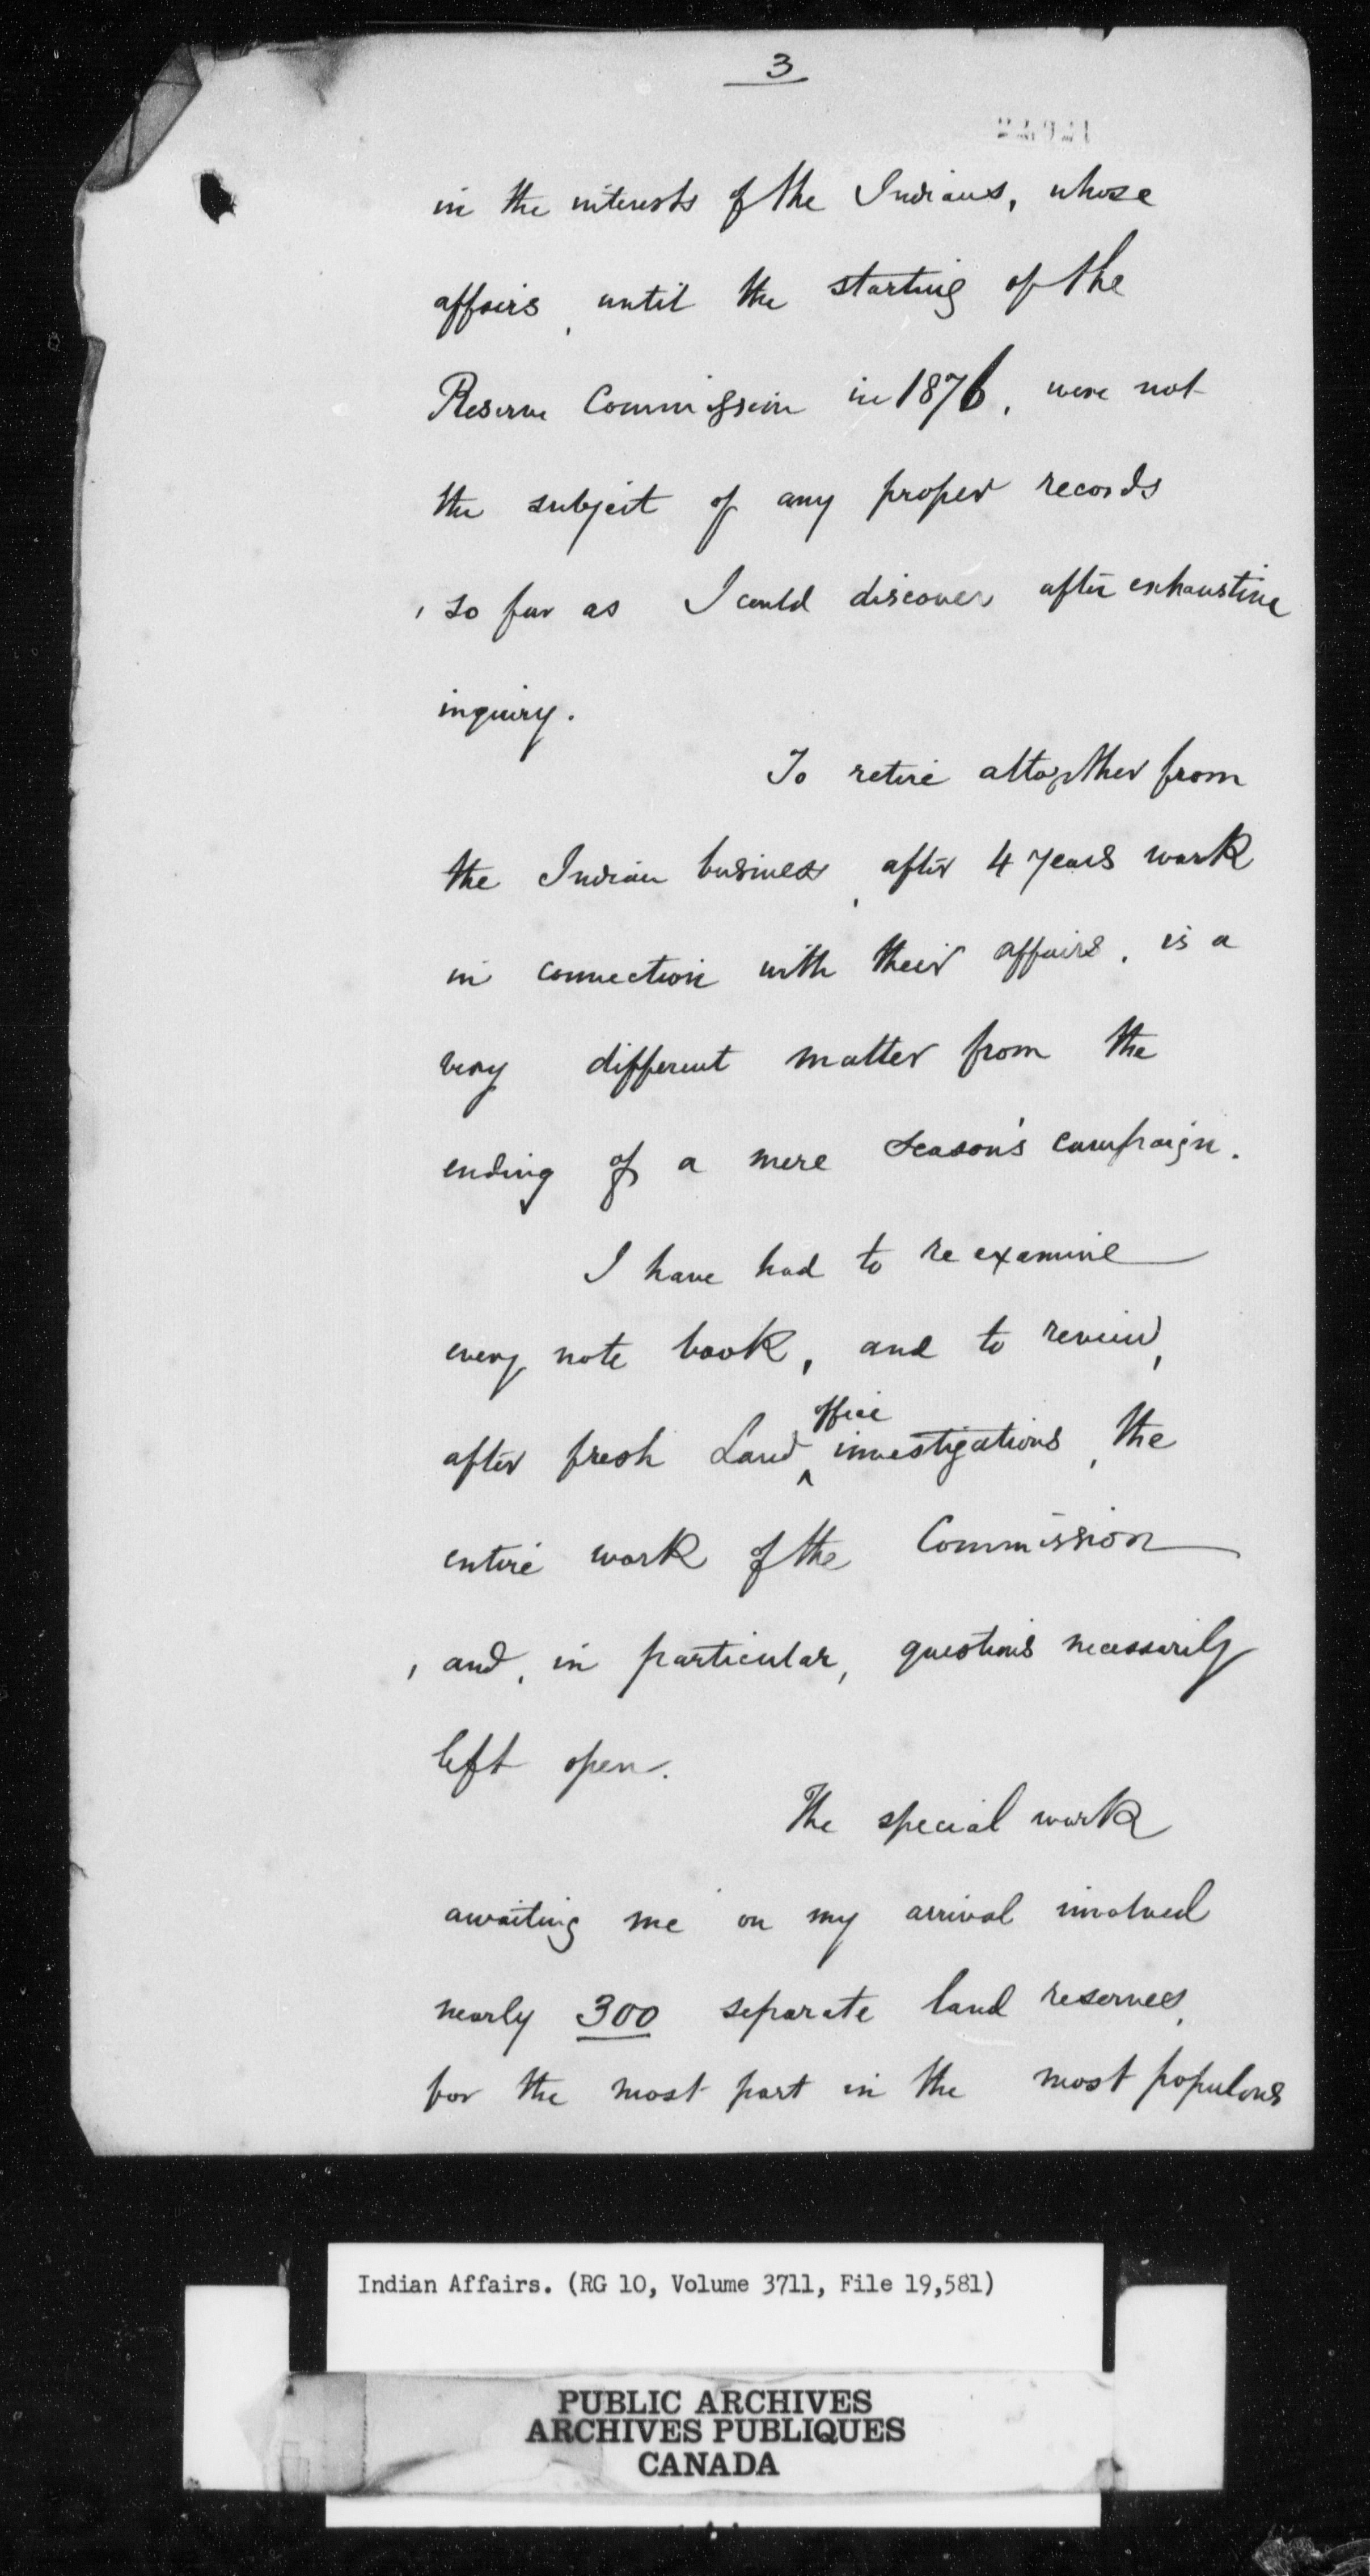 3
in the interests of the Indians, whose
affairs, until the starting of the
Reserve Commission in 1876, were not
the subject of any proper records
, so far as I could discover after exhaustive
inquiry.
To retire altogether from
the Indian business, after 4 years work
in connection with their affairs, is a
very different matter from the
ending of a mere season's campaign.
I have had to re examine
every note book, and to review,
office
after fresh Land ^ investigations, the
entire work of the Commission
, and, in particular, questions necessarily
left open.
The special work
awaiting me on my arrival involved
nearly 300 separate land reserves,
for the most part in the most populous
Indian Affairs. (RG 10, Volume 3711, File 19,581)
PUBLIC ARCHIVES
ARCHIVES PUBLIQUES
CANADA